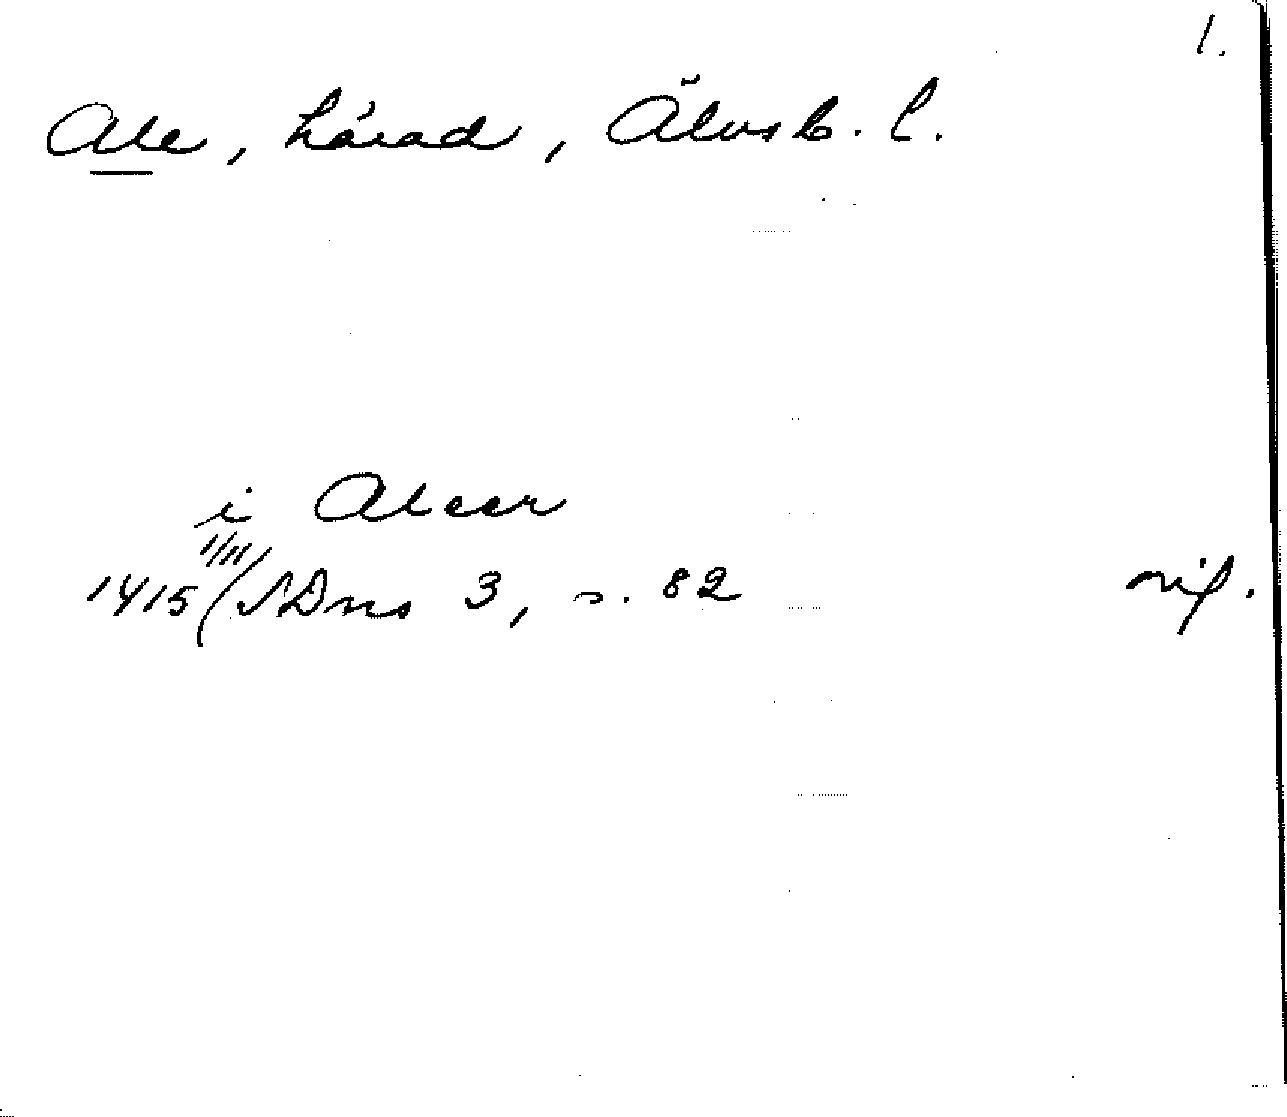 1.
Ale, härad, Älvsb. l.
i Aleer
1415 1/11 SDns 3, s. 82